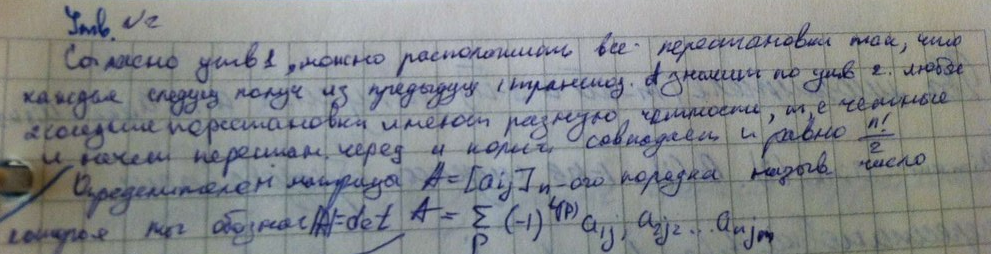 Утв. №2
Согласно утв 1, можно расположить все перестановки так, что
каждая следущ получ из предыдущ 1 транспоз. А значит по утв 2. любые
2 соседние перестановки имеют разную четность, т, е четные
и нечет перестан. черед и колич совпадает и равно n!/2
Определителем матрицы A = [aij] n-ого порядка назыв число
которое мы обознач |A| = det A = ∑P (-1)^{(P)} a1j1 a2j2 ... anjn